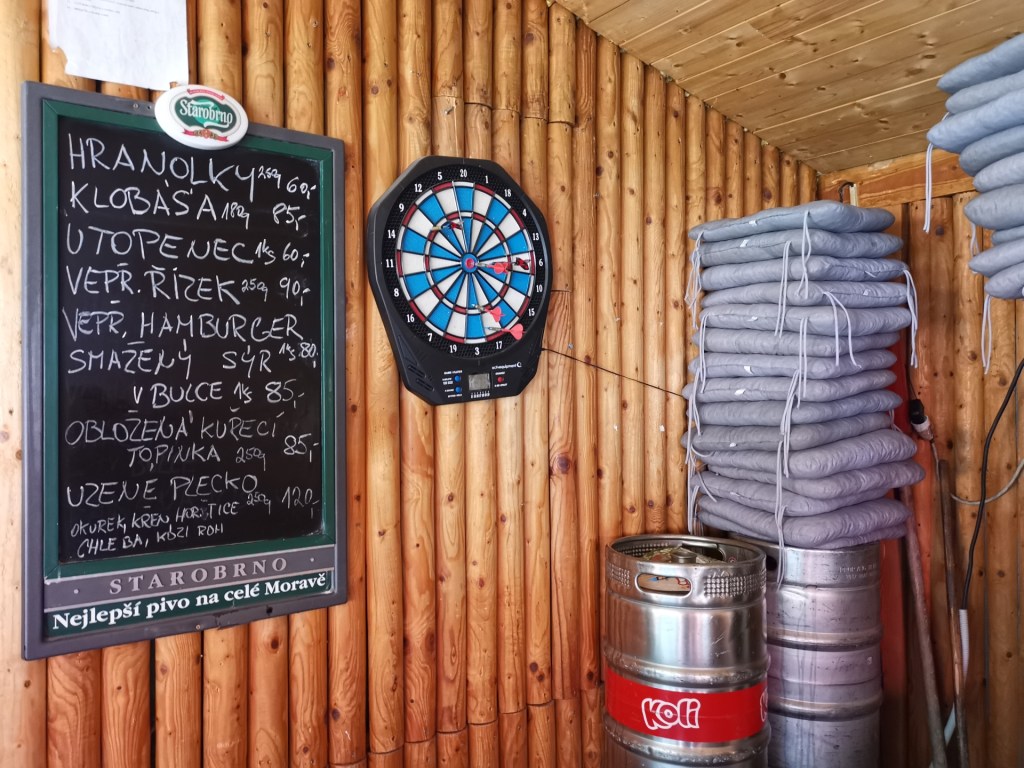 Starobrno
HRANOLKY 250g 60,-
KLOBÁSA 180g 85,-
UTOPENEC 1ks 60,-
VEPŘ. ŘÍZEK 250g 90,-
VEPŘ. HAMBURGER
SMAŽENÝ SÝR 1ks 80,-
V BULCE 1ks 85,-
OBLOŽENÁ KUŘECÍ
TOPINKA 250g 85,-
UZENÉ PLECKO
OKUREK, KŘEN, HOŘČICE 250g 120,-
CHLEBA, KOZÍ ROH
STAROBRNO
Nejlepší pivo na celé Moravě
20 1 18 4 13 6 10 15 2 17 3 19 7 16 8 11 14 9 12 5
koli